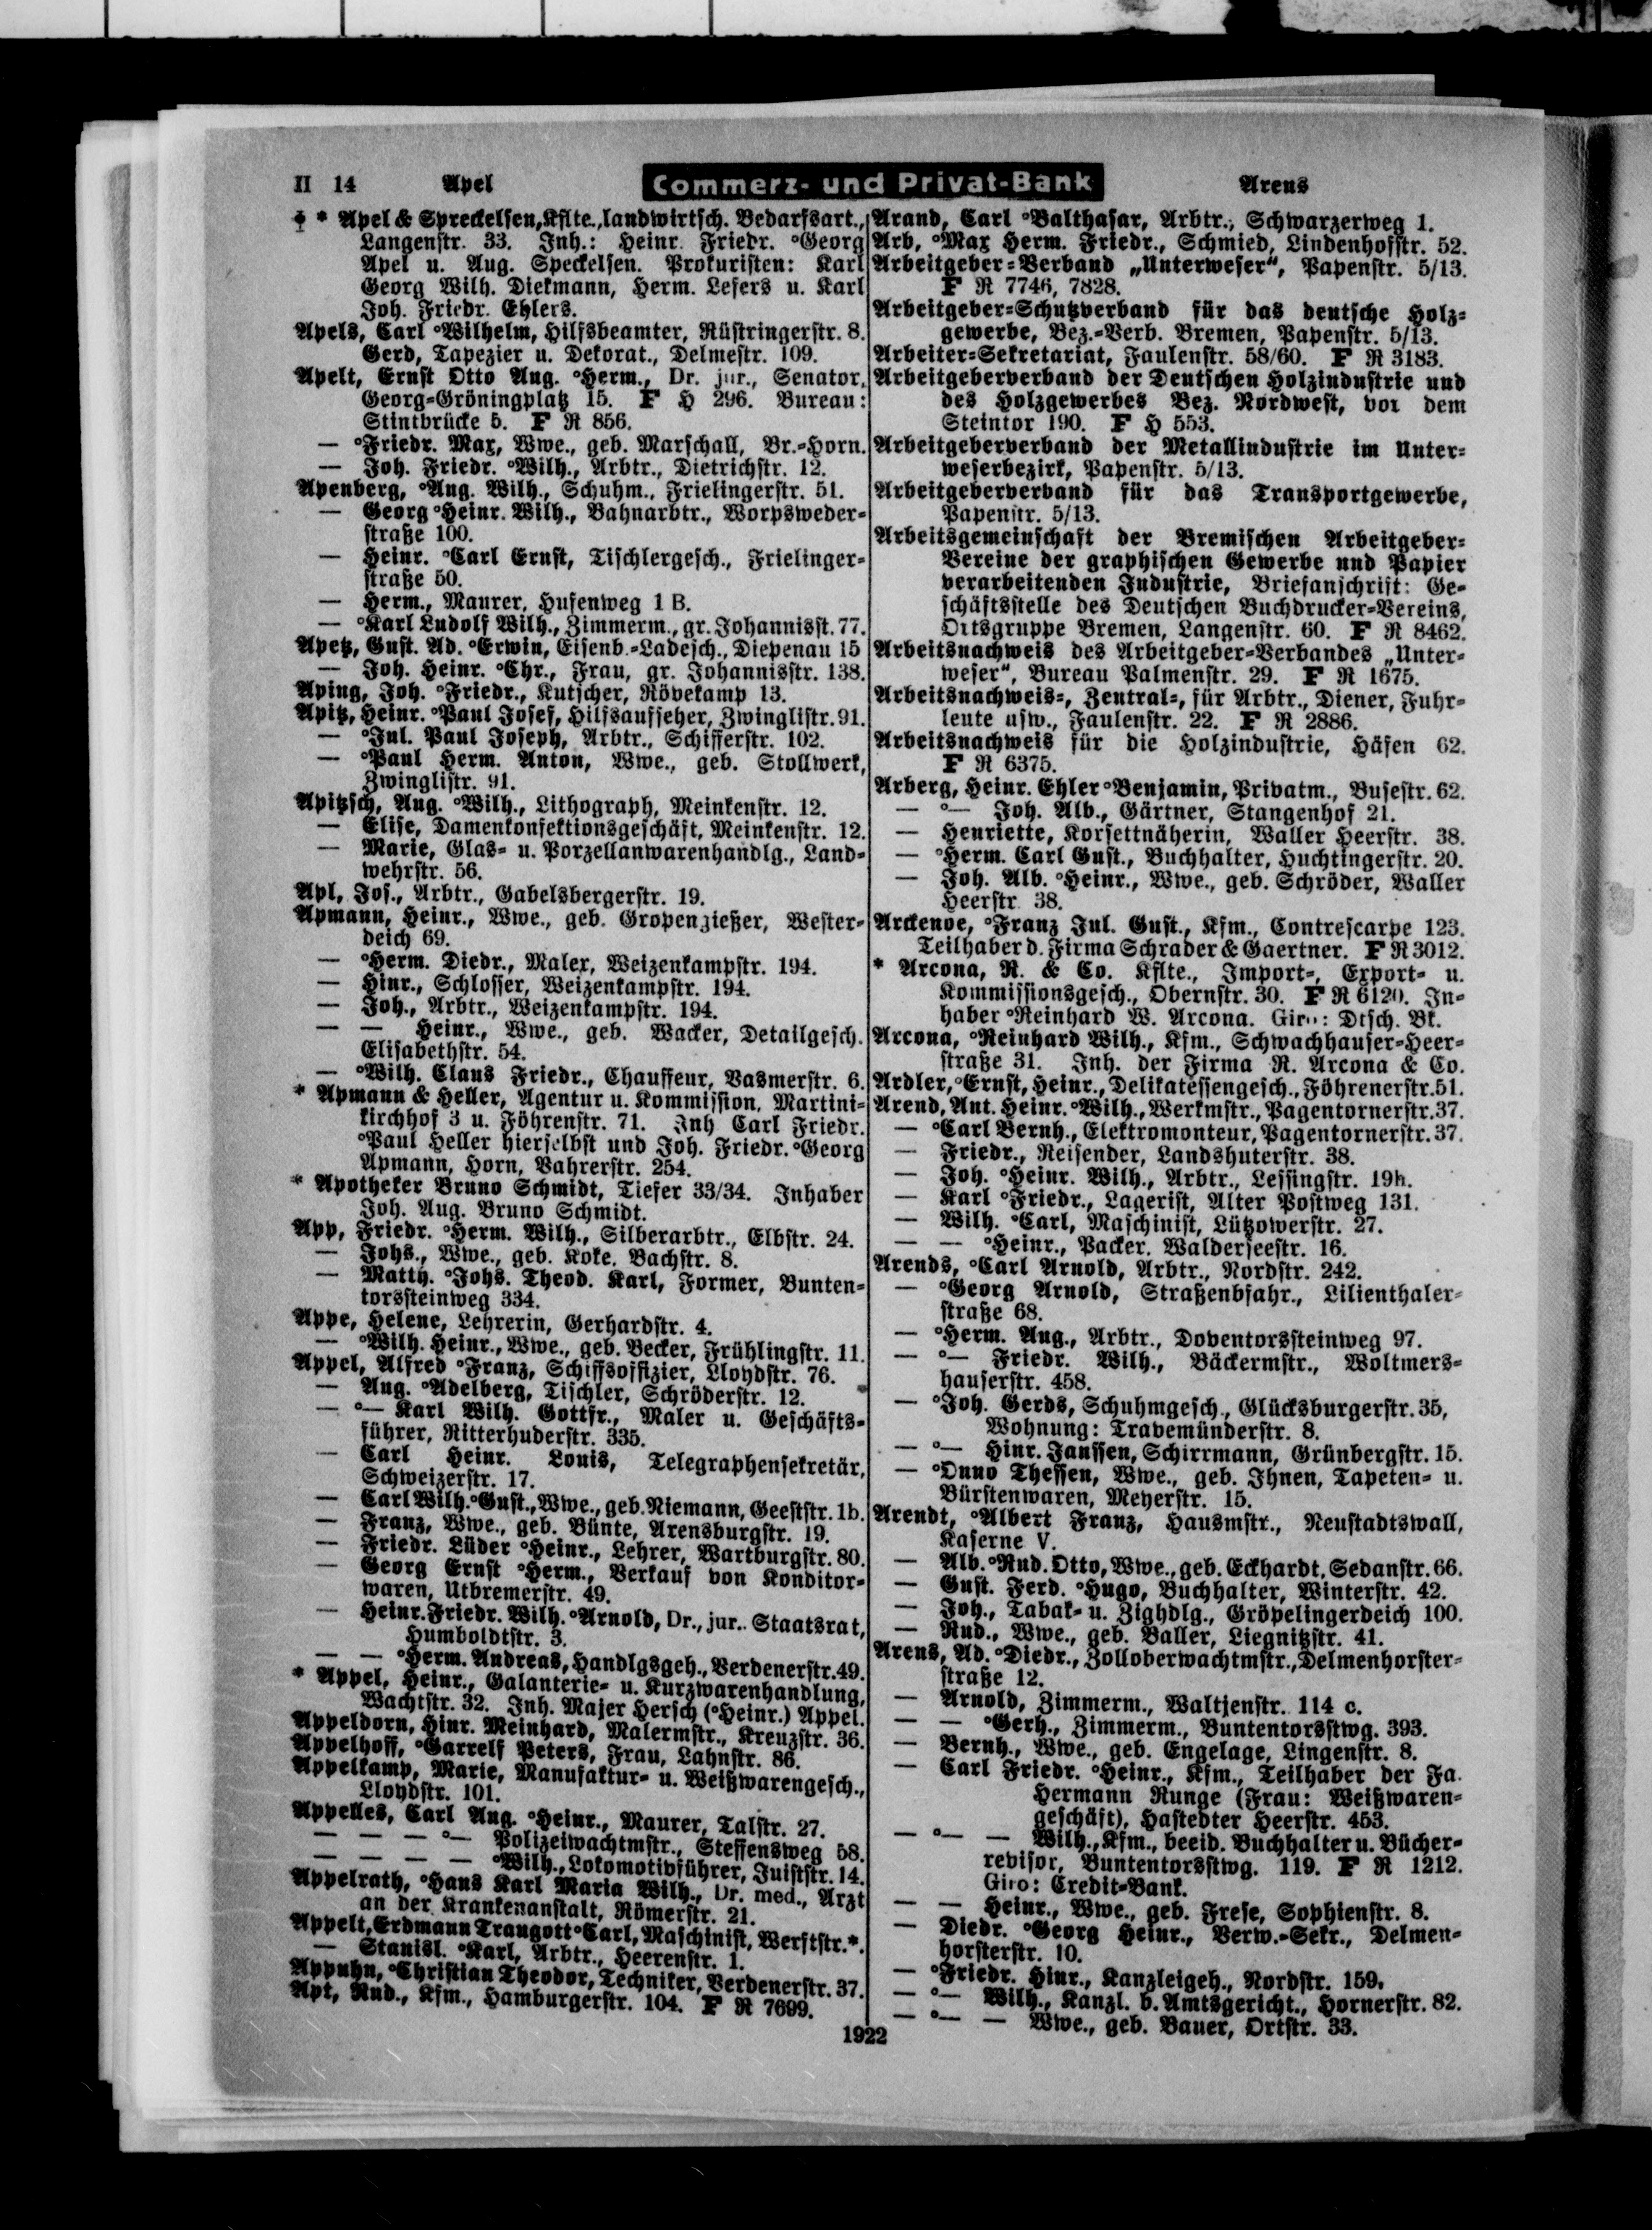 II 14 Apel Commerz- und Privat-Bank Arens
‡ * Apel & Spreckelsen, Kflte., landwirtsch. Bedarfsart.,
Langenstr. 33. Inh.: Heinr. Friedr. °Georg
Apel u. Aug. Speckelsen. Prokuristen: Karl
Georg Wilh. Diekmann, Herm. Lefers u. Karl
Joh. Friedr. Ehlers.
Apels, Carl °Wilhelm, Hilfsbeamter, Rüstringerstr. 8.
Gerd, Tapezier u. Dekorat., Delmestr. 109.
Apelt, Ernst Otto Aug. °Herm., Dr. jur., Senator,
Georg-Gröningplatz 15. F H 296. Bureau:
Stintbrücke 5. F R 856.
— °Friedr. Max, Wwe., geb. Marschall, Br.-Horn.
— Joh. Friedr. °Wilh., Arbtr., Dietrichstr. 12.
Apenberg, °Aug. Wilh., Schuhm., Frielingerstr. 51.
— Georg °Heinr. Wilh., Bahnarbtr., Worpsweder-
straße 100.
— Heinr. °Carl Ernst, Tischlergesch., Frielinger-
straße 50.
— Herm., Maurer, Hufenweg 1 B.
— °Karl Ludolf Wilh., Zimmerm., gr. Johannisst. 77.
Apetz, Gust. Ad. °Erwin, Eisenb.-Ladesch., Diepenau 15
— Joh. Heinr. °Chr., Frau, gr. Johannisstr. 138.
Aping, Joh. °Friedr., Kutscher, Rövekamp 13.
Apitz, Heinr. °Paul Josef, Hilfsaufseher, Zwinglistr. 91.
— °Jul. Paul Joseph, Arbtr., Schifferstr. 102.
— °Paul Herm. Anton, Wwe., geb. Stollwerk,
Zwinglistr. 91.
Apitzsch, Aug. °Wilh., Lithograph, Meinkenstr. 12.
— Elise, Damenkonfektionsgeschäft, Meinkenstr. 12.
— Marie, Glas- u. Porzellanwarenhandlg., Land-
wehrstr. 56.
Apl, Jos., Arbtr., Gabelsbergerstr. 19.
Apmann, Heinr., Wwe., geb. Gropengießer, Wester-
deich 69.
— °Herm. Diedr., Maler, Weizenkampstr. 194.
— Hinr., Schlosser, Weizenkampstr. 194.
— Joh., Arbtr., Weizenkampstr. 194.
— — Heinr., Wwe., geb. Wacker, Detailgesch.
Elisabethstr. 54.
— °Wilh. Claus Friedr., Chauffeur, Vasmerstr. 6.
* Apmann & Heller, Agentur u. Kommission, Martini-
kirchhof 3 u. Föhrenstr. 71. Inh Carl Friedr.
°Paul Heller hierselbst und Joh. Friedr. °Georg
Apmann, Horn, Vahrerstr. 254.
* Apotheker Bruno Schmidt, Tiefer 33/34. Inhaber
Joh. Aug. Bruno Schmidt.
App, Friedr. °Herm. Wilh., Silberarbtr., Elbstr. 24.
— Johs., Wwe., geb. Koke, Bachstr. 8.
— Matth. °Johs. Theod. Karl, Former, Bunten-
torssteinweg 334.
Appe, Helene, Lehrerin, Gerhardstr. 4.
— °Wilh. Heinr., Wwe., geb. Becker, Frühlingstr. 11.
Appel, Alfred °Franz, Schiffsoffizier, Lloydstr. 76.
— Aug. °Adelberg, Tischler, Schröderstr. 12.
— °— Karl Wilh. Gottfr., Maler u. Geschäfts-
führer, Ritterhuderstr. 335.
— Carl Heinr. Louis, Telegraphensekretär,
Schweizerstr. 17.
— Carl Wilh. °Gust., Wwe., geb. Niemann, Geeststr. 1b.
— Franz, Wwe., geb. Bünte, Arensburgstr. 19.
— Friedr. Lüder °Heinr., Lehrer, Wartburgstr. 80.
— Georg Ernst °Herm., Verkauf von Konditor-
waren, Utbremerstr. 49.
— Heinr. Friedr. Wilh. °Arnold, Dr., jur. Staatsrat,
Humboldtstr. 3.
— — °Herm. Andreas, Handlgsgeh., Verdenerstr. 49.
* Appel, Heinr., Galanterie- u. Kurzwarenhandlung,
Wachtstr. 32. Inh. Majer Hersch (°Heinr.) Appel.
Appeldorn, Hinr. Meinhard, Malermstr., Kreuzstr. 36.
Appelhoff, °Garrelf Peters, Frau, Lahnstr. 86.
Appelkamp, Marie, Manufaktur- u. Weißwarengesch.,
Lloydstr. 101.
Appelles, Carl Aug. °Heinr., Maurer, Talstr. 27.
— — — °— Polizeiwachtmstr., Steffensweg 58.
— — — — °Wilh., Lokomotivführer, Juiststr. 14.
Appelrath, °Hans Karl Maria Wilh., Dr. med., Arzt
an der Krankenanstalt, Römerstr. 21.
Appelt, Erdmann Traugott °Carl, Maschinist, Werftstr. *.
— Stanisl. °Karl, Arbtr., Heerenstr. 1.
Appuhn, °Christian Theodor, Techniker, Verdenerstr. 37.
Apt, Rud., Kfm., Hamburgerstr. 104. F R 7699.
Arand, Carl °Balthasar, Arbtr., Schwarzerweg 1.
Arb, °Max Herm. Friedr., Schmied, Lindenhofstr. 52.
Arbeitgeber-Verband „Unterweser“, Papenstr. 5/13.
F R 7746, 7828.
Arbeitgeber-Schutzverband für das deutsche Holz-
gewerbe, Bez.-Verb. Bremen, Papenstr. 5/13.
Arbeiter-Sekretariat, Faulenstr. 58/60. F R 3183.
Arbeitgeberverband der Deutschen Holzindustrie und
des Holzgewerbes Bez. Nordwest, vor dem
Steintor 190. F H 553.
Arbeitgeberverband der Metallindustrie im Unter-
weserbezirk, Papenstr. 5/13.
Arbeitgeberverband für das Transportgewerbe,
Papenstr. 5/13.
Arbeitsgemeinschaft der Bremischen Arbeitgeber-
Vereine der graphischen Gewerbe und Papier
verarbeitenden Industrie, Briefanschrift: Ge-
schäftsstelle des Deutschen Buchdrucker-Vereins,
Ortsgruppe Bremen, Langenstr. 60. F R 8462.
Arbeitsnachweis des Arbeitgeber-Verbandes „Unter-
weser“, Bureau Palmenstr. 29. F R 1675.
Arbeitsnachweis-, Zentral-, für Arbtr., Diener, Fuhr-
leute usw., Faulenstr. 22. F R 2886.
Arbeitsnachweis für die Holzindustrie, Häfen 62.
F R 6375.
Arberg, Heinr. Ehler °Benjamin, Privatm., Busestr. 62.
— °— Joh. Alb., Gärtner, Stangenhof 21.
— Henriette, Korsettnäherin, Waller Heerstr. 38.
— °Herm. Carl Gust., Buchhalter, Huchtingerstr. 20.
— Joh. Alb. °Heinr., Wwe., geb. Schröder, Waller
Heerstr 38.
Arckenoe, °Franz Jul. Gust., Kfm., Contrescarpe 123.
Teilhaber d. Firma Schrader & Gaertner. F R 3012.
* Arcona, R. & Co. Kflte., Import-, Export- u.
Kommissionsgesch., Obernstr. 30. F R 6120. In-
haber °Reinhard W. Arcona. Giro: Dtsch. Bk.
Arcona, °Reinhard Wilh., Kfm., Schwachhauser-Heer-
straße 31. Inh. der Firma R. Arcona & Co.
Ardler, °Ernst, Heinr., Delikatessengesch., Föhrenerstr. 51.
Arend, Ant. Heinr. °Wilh., Werkmstr., Pagentornerstr. 37.
— °Carl Bernh., Elektromonteur, Pagentornerstr. 37.
— Friedr., Reisender, Landshuterstr. 38.
— Joh. °Heinr. Wilh., Arbtr., Lessingstr. 19h.
— Karl °Friedr., Lagerist, Alter Postweg 131.
— Wilh. °Carl, Maschinist, Lützowerstr. 27.
— — °Heinr., Packer, Walderseestr. 16.
Arends, °Carl Arnold, Arbtr., Nordstr. 242.
— °Georg Arnold, Straßenbfahr., Lilienthaler-
straße 68.
— °Herm. Aug., Arbtr., Doventorssteinweg 97.
— °— Friedr. Wilh., Bäckermstr., Woltmers-
hauserstr. 458.
— °Joh. Gerds, Schuhmgesch., Glücksburgerstr. 35,
Wohnung: Travemünderstr. 8.
— °— Hinr. Janssen, Schirrmann, Grünbergstr. 15.
— °Onno Thessen, Wwe., geb. Ihnen, Tapeten- u.
Bürstenwaren, Meyerstr. 15.
Arendt, °Albert Franz, Hausmstr., Neustadtswall,
Kaserne V.
— Alb. °Rud. Otto, Wwe., geb. Eckhardt, Sedanstr. 66.
— Gust. Ferd. °Hugo, Buchhalter, Winterstr. 42.
— Joh., Tabak- u. Zighdlg., Gröpelingerdeich 100.
— Rud., Wwe., geb. Baller, Liegnitzstr. 41.
Arens, Ad. °Diedr., Zolloberwachtmstr., Delmenhorster-
straße 12.
— Arnold, Zimmerm., Waltjenstr. 114 c.
— — °Gerh., Zimmerm., Buntentorsstwg. 393.
— Bernh., Wwe., geb. Engelage, Lingenstr. 8.
— Carl Friedr. °Heinr., Kfm., Teilhaber der Fa.
Hermann Runge (Frau: Weißwaren-
geschäft), Hastedter Heerstr. 453.
— °— — Wilh., Kfm., beeid. Buchhalter u. Bücher-
revisor, Buntentorsstwg. 119. F R 1212.
Giro: Credit-Bank.
— — Heinr., Wwe., geb. Frese, Sophienstr. 8.
— Diedr. °Georg Heinr., Verw.-Sekr., Delmen-
horsterstr. 10.
— °Friedr. Hinr., Kanzleigeh., Nordstr. 159.
— °— Wilh., Kanzl. b. Amtsgericht., Hornerstr. 82.
— °— — Wwe., geb. Bauer, Ortstr. 33.
1922